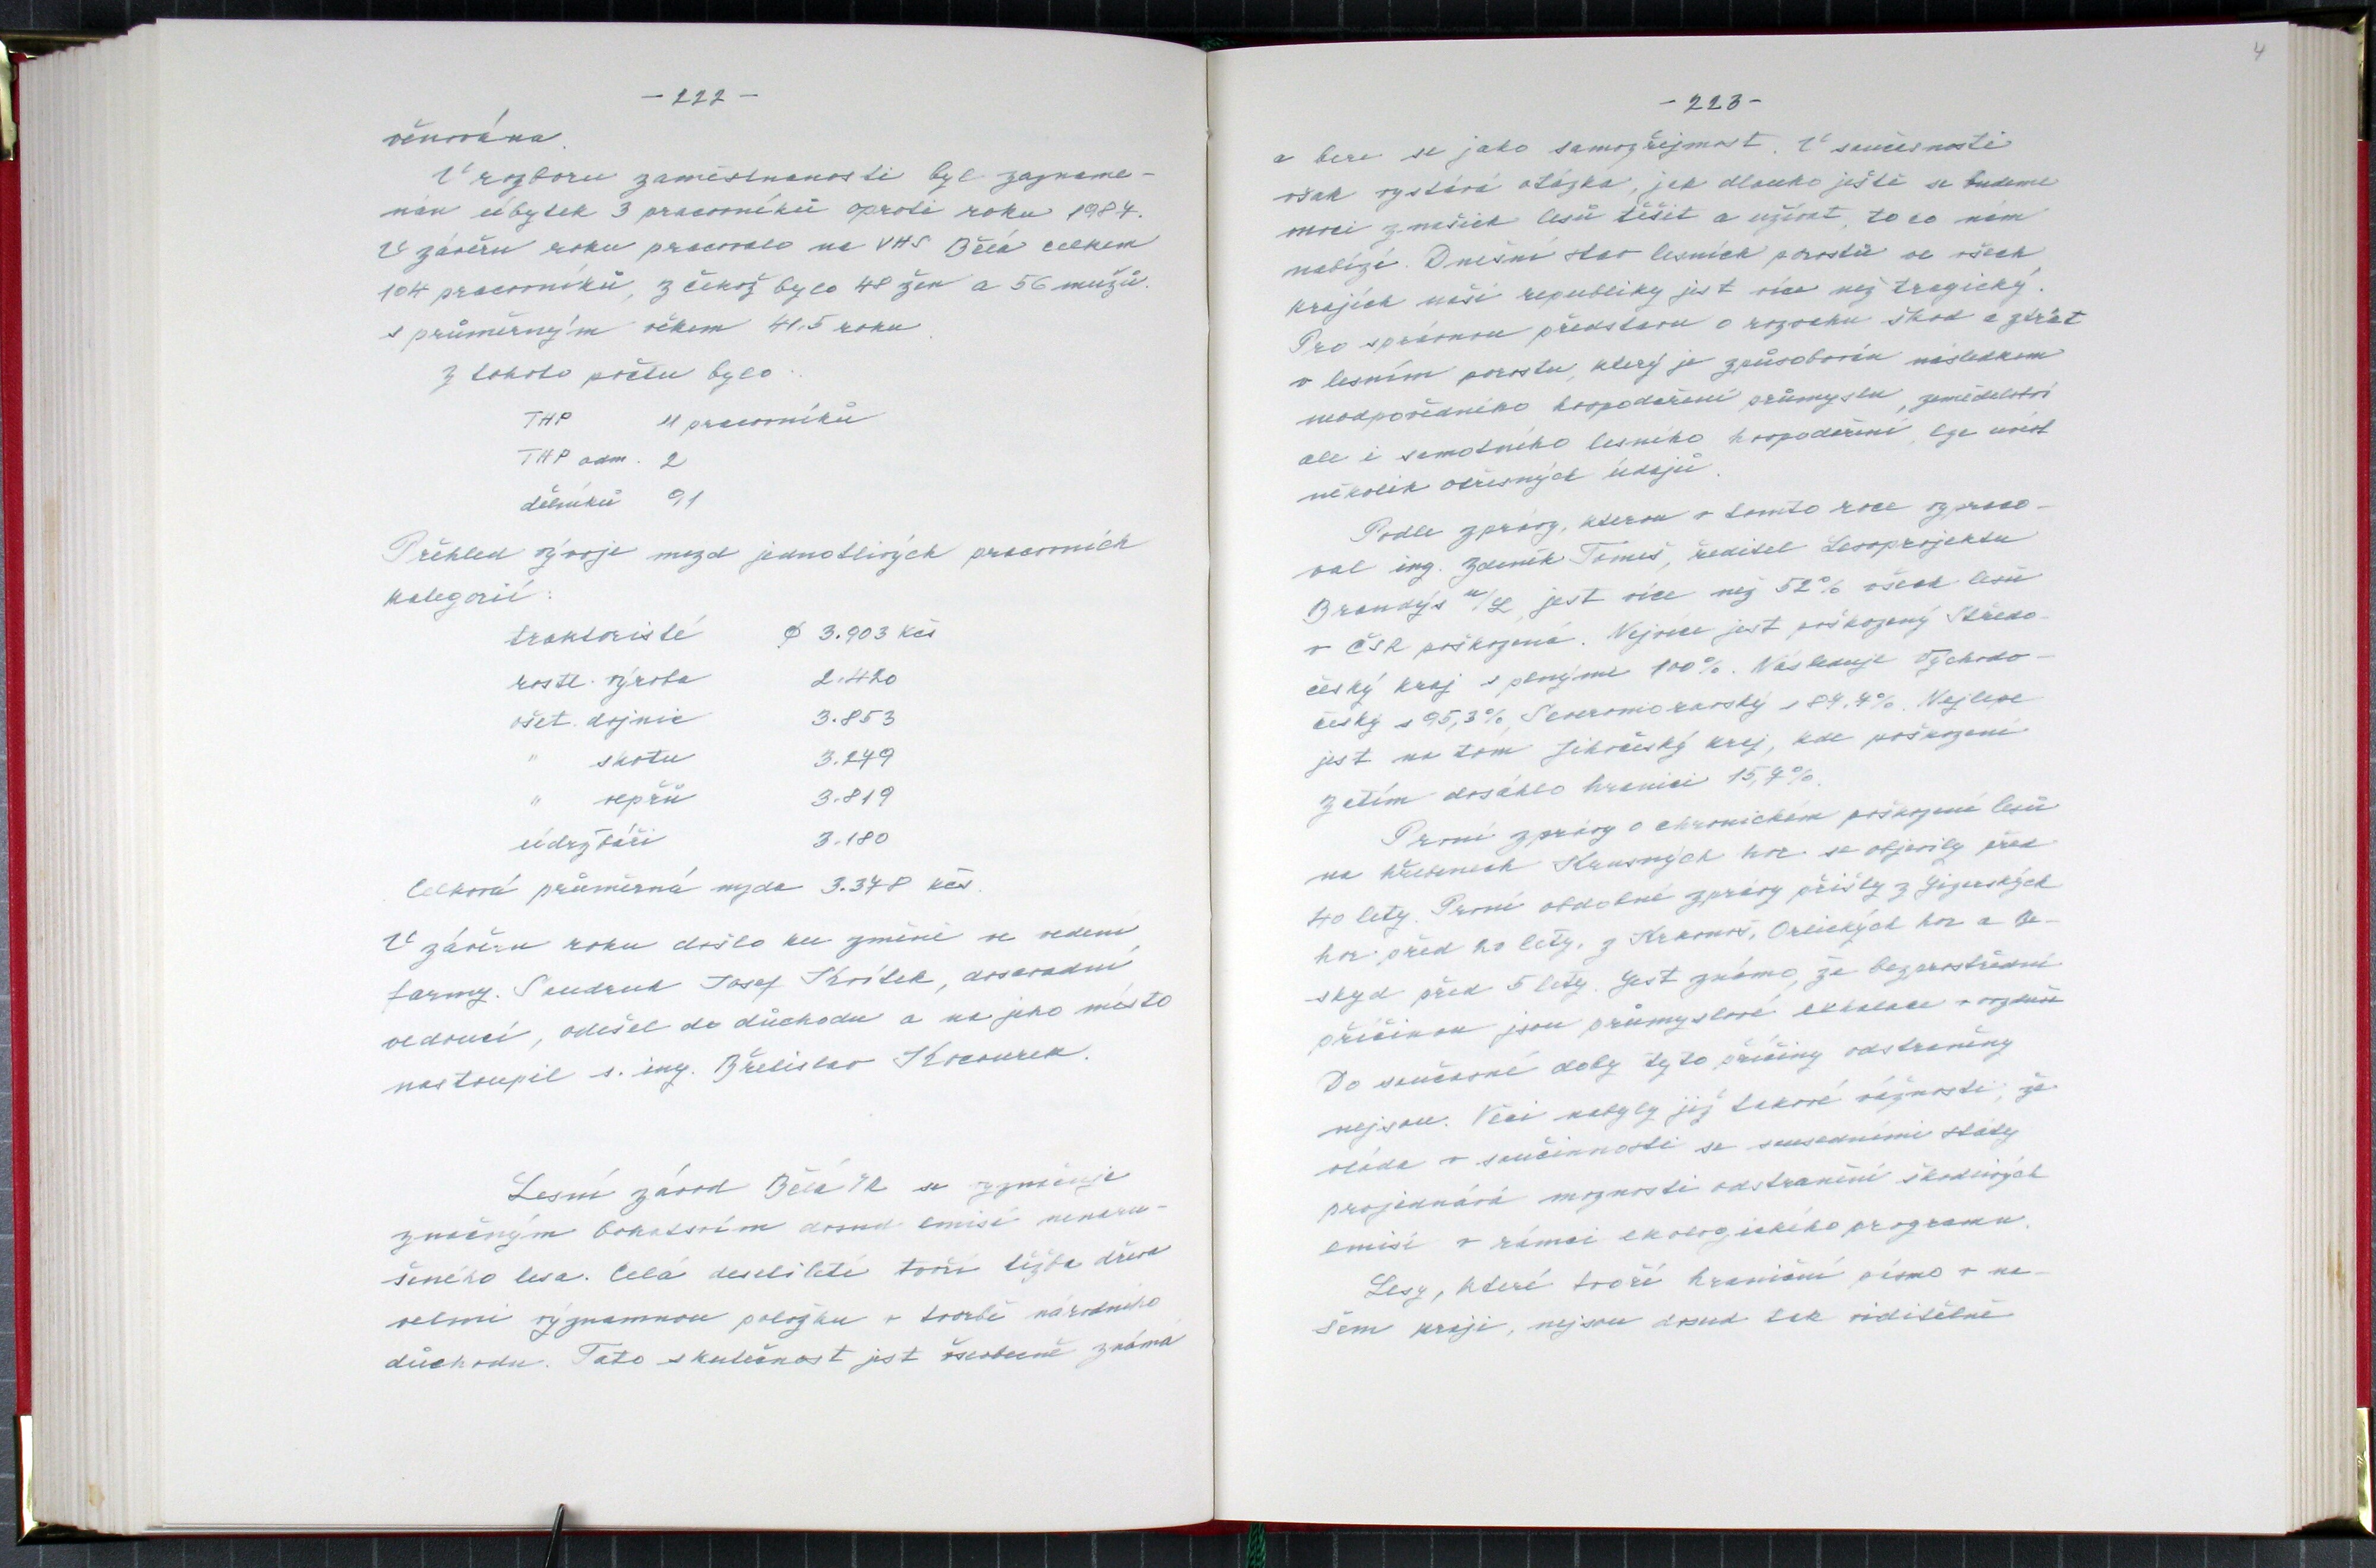 - 222 -
věnována.
V rozboru zaměstnanosti byl zazname-
nán úbytek 3 pracovníků oproti roku 1984.
V závěru roku pracovalo na VHS Bělá celkem
104 pracovníků, z čehož bylo 48 žen a 56 mužů.
s průměrným věkem 41,5 roku.
Z tohoto počtu bylo:
THP 11 pracovníků
THP adm. 2
dělníků 91
Přehled vývoje mezd jednotlivých pracovních
kategorií:
traktoristé Ø 3.903 Kčs
rostl. výroba 2.420
ošet. dojnic 3.853
" skotu 3.279
" vepřů 3.819
údržbáři 3.180
Celková průměrná mzda 3.378 Kčs.
V závěru roku došlo ku změně ve vedení
farmy. Soudruh Josef Kvítek, dosavadní
vedoucí, odešel do důchodu a na jeho místo
nastoupil s. ing. Břetislav Kocourek.
Lesní závod Bělá /R se vyznačuje
značným bohatstvím dosud emisí nenaru-
šeného lesa. Celá desetiletí tvoří těžba dřeva
velmi významnou položku v tvorbě národního
důchodu. Tato skutečnost jest všeobecně známá
4
- 223 -
a bere se jako samozřejmost. V současnosti
však vystává otázka, jak dlouho ještě se budeme
moci z našich lesů těšit a užívat, to co nám
nabízí. Dnešní stav lesních porostů ve všech
krajích naší republiky jest více než tragický.
Pro správnou představu o rozsahu škod a ztrát
v lesním porostu, který je způsobován následkem
neodpovědného hospodaření průmyslu, zemědělství
ale i samotného lesního hospodaření, lze uvést
několik otřesných údajů.
Podle zprávy, kterou v tomto roce vypraco-
val ing. Zdeněk Tomeš, ředitel Lesoprojektu
Brandýs n/L jest více než 52% všech lesů
v ČSR poškozená. Nejvíce jest poškozený Středo-
český kraj s plnými 100%. Následuje Východo-
český s 95,3% Severomoravský s 87,7%. Nejlépe
jest na tom Jihočeský kraj, kde poškození
zatím dosáhlo hranici 15,7%.
První zprávy o chronickém poškození lesů
na hřebenech Krušných hor se objevily před
40 lety. První obdobné zprávy přišly z Jizerských
hor před 20 lety, z Krkonoš, Orlických hor a Be-
skyd před 5 lety. Jest známo, že bezprostřední
příčinou jsou průmyslové exhalace v ovzduší
Do současné doby tyto příčiny odstraněny
nejsou. Věci nabyly již takové vážnosti, že
vláda v součinnosti se sousedními státy
projednává moznosti odstranění škodlivých
emisí v rámci ekologického programu.
Lesy, které tvoří hraniční pásmo v na-
šem kraji, nejsou dosud tak viditelně